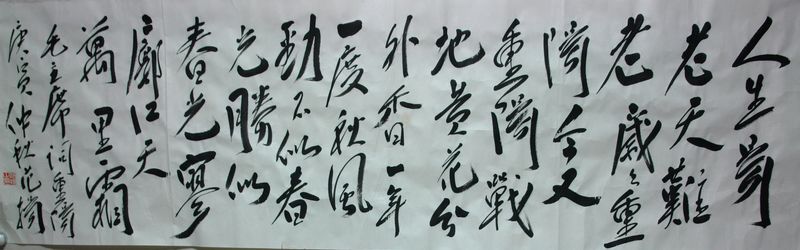 人生易
老天難
老歲々重
陽今又
重陽戰
地黄花分
外香一年
一度秋風
勁不似春
光勝似
春光寥
廓江天
萬里霜
毛主席词重陽
庚寅仲秋